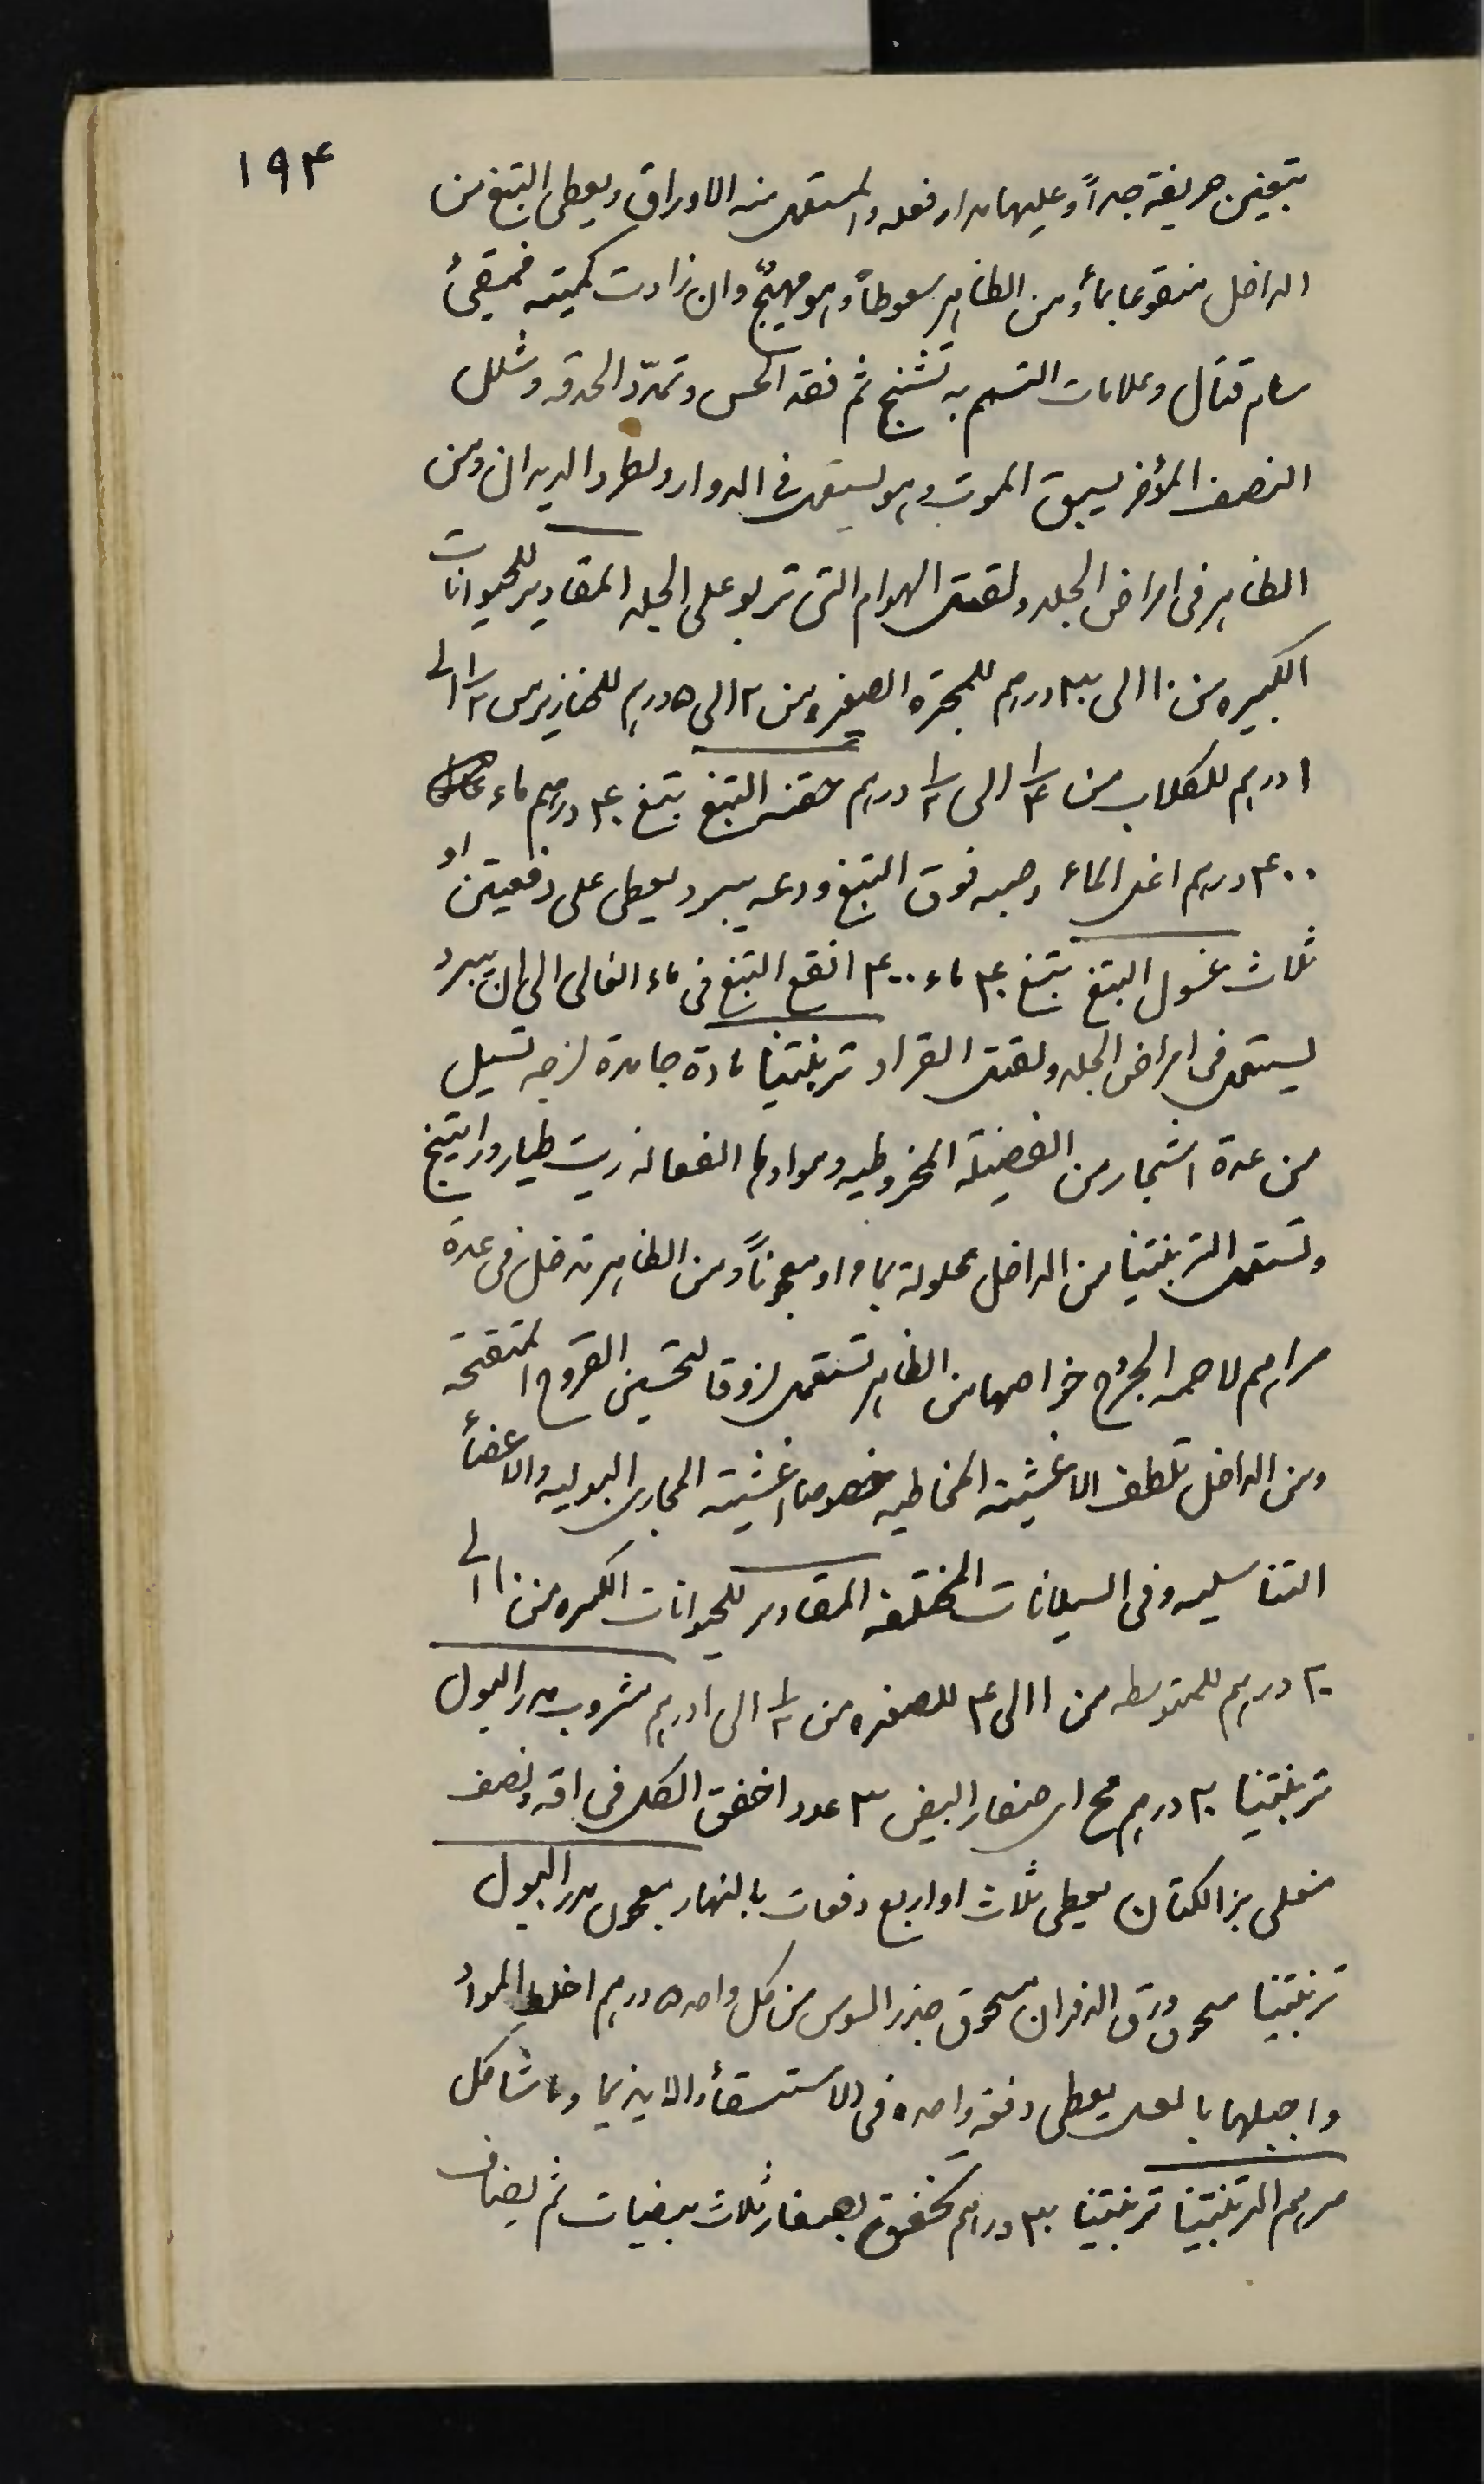 ١٩۴
تبغين حريفة جداً وعليها مدار فعله والمستعمل منه الاوراق ويعطى التبغ من
الداخل منقوعا بماءٍ ومن الظاهر سعوطاً وهو مهيّج وان زادت كميته فمقيئ
سام قتال وعلامات التسمم به تشنج ثم فقد الحس وتمدّد الحدقه وشلل
النصف المؤخر يسبق الموت وهو يستعمل فى الدوار ولطرد الديدان ومن
الظاهر فى امراض الجلد ولقتل الهوام التى تربو على الجلد المقادير للحيوانات
الكبيره من ١٠ الى ٣٠ درهم للمجتره الصغيره من ٢ الى ٥ درهم للخنازير من ١/٢ الى
١ درهم للكلاب من ١/۴ الى ١/٢ درهم حقنة التبغ تبغ ۴٠ درهم ماء
۴٠٠ درهم اغل الماء وصبه فوق التبغ ودعه يبرد يعطى على دفعيتن او
ثلاث غسول التبغ تبغ ۴٠ ماء ۴٠٠ انقع التبغ فى ماء الغالى الى ان يبرد
يستعمل فى امراض الجلد ولقتل القراد تربنتينا مادة جامدة لزجه تسيل
من عدة اشجار من الفصيلة المخروطيه وموادها الفعاله زيت طيار وراتينج
وتستعمل التربنتينا من الداخل محلولة بماء او معجوناً ومن الظاهر تدخل فى عدة
مراهم لاحمه الجروح خواصها من الظاهر تستعمل لزوقا لتحسين القروح المتقيحه
ومن الداخل تلطف الاغشيته المخاطيه خصوصا اغشيته المجارى البوليه والاعضأ
التناسليه وفى السيلانات المختلفه المقادير للحيوانات الكبيره من ١٠ الى
٢٠ درهم للمتوسطه من ١ الى ۴ للصغيره من ١/٢ الى ١ درهم مشروب مدر البول
تربنتينا ٢٠ درهم مح اى صفار البيض ٣ عدد اخفق الكل فى اقه ونصف
مغلى بزر الكتان يعطى ثلاث او اربع دفعات بالنهار معجون مدر البول
تربنتينا مسحوق ورق الدفران مسحوق جذر السوس من كل واحد ٥ درهم اخلط المواد
واجبلها بالعسل يعطى دفعة واحده فى الاستسقأ والاينيما وما شاكل
مرهم التربنتينا تربنتينا ٣٠ درهم تخفق بصفار ثلاث بيضات ثم يضاف